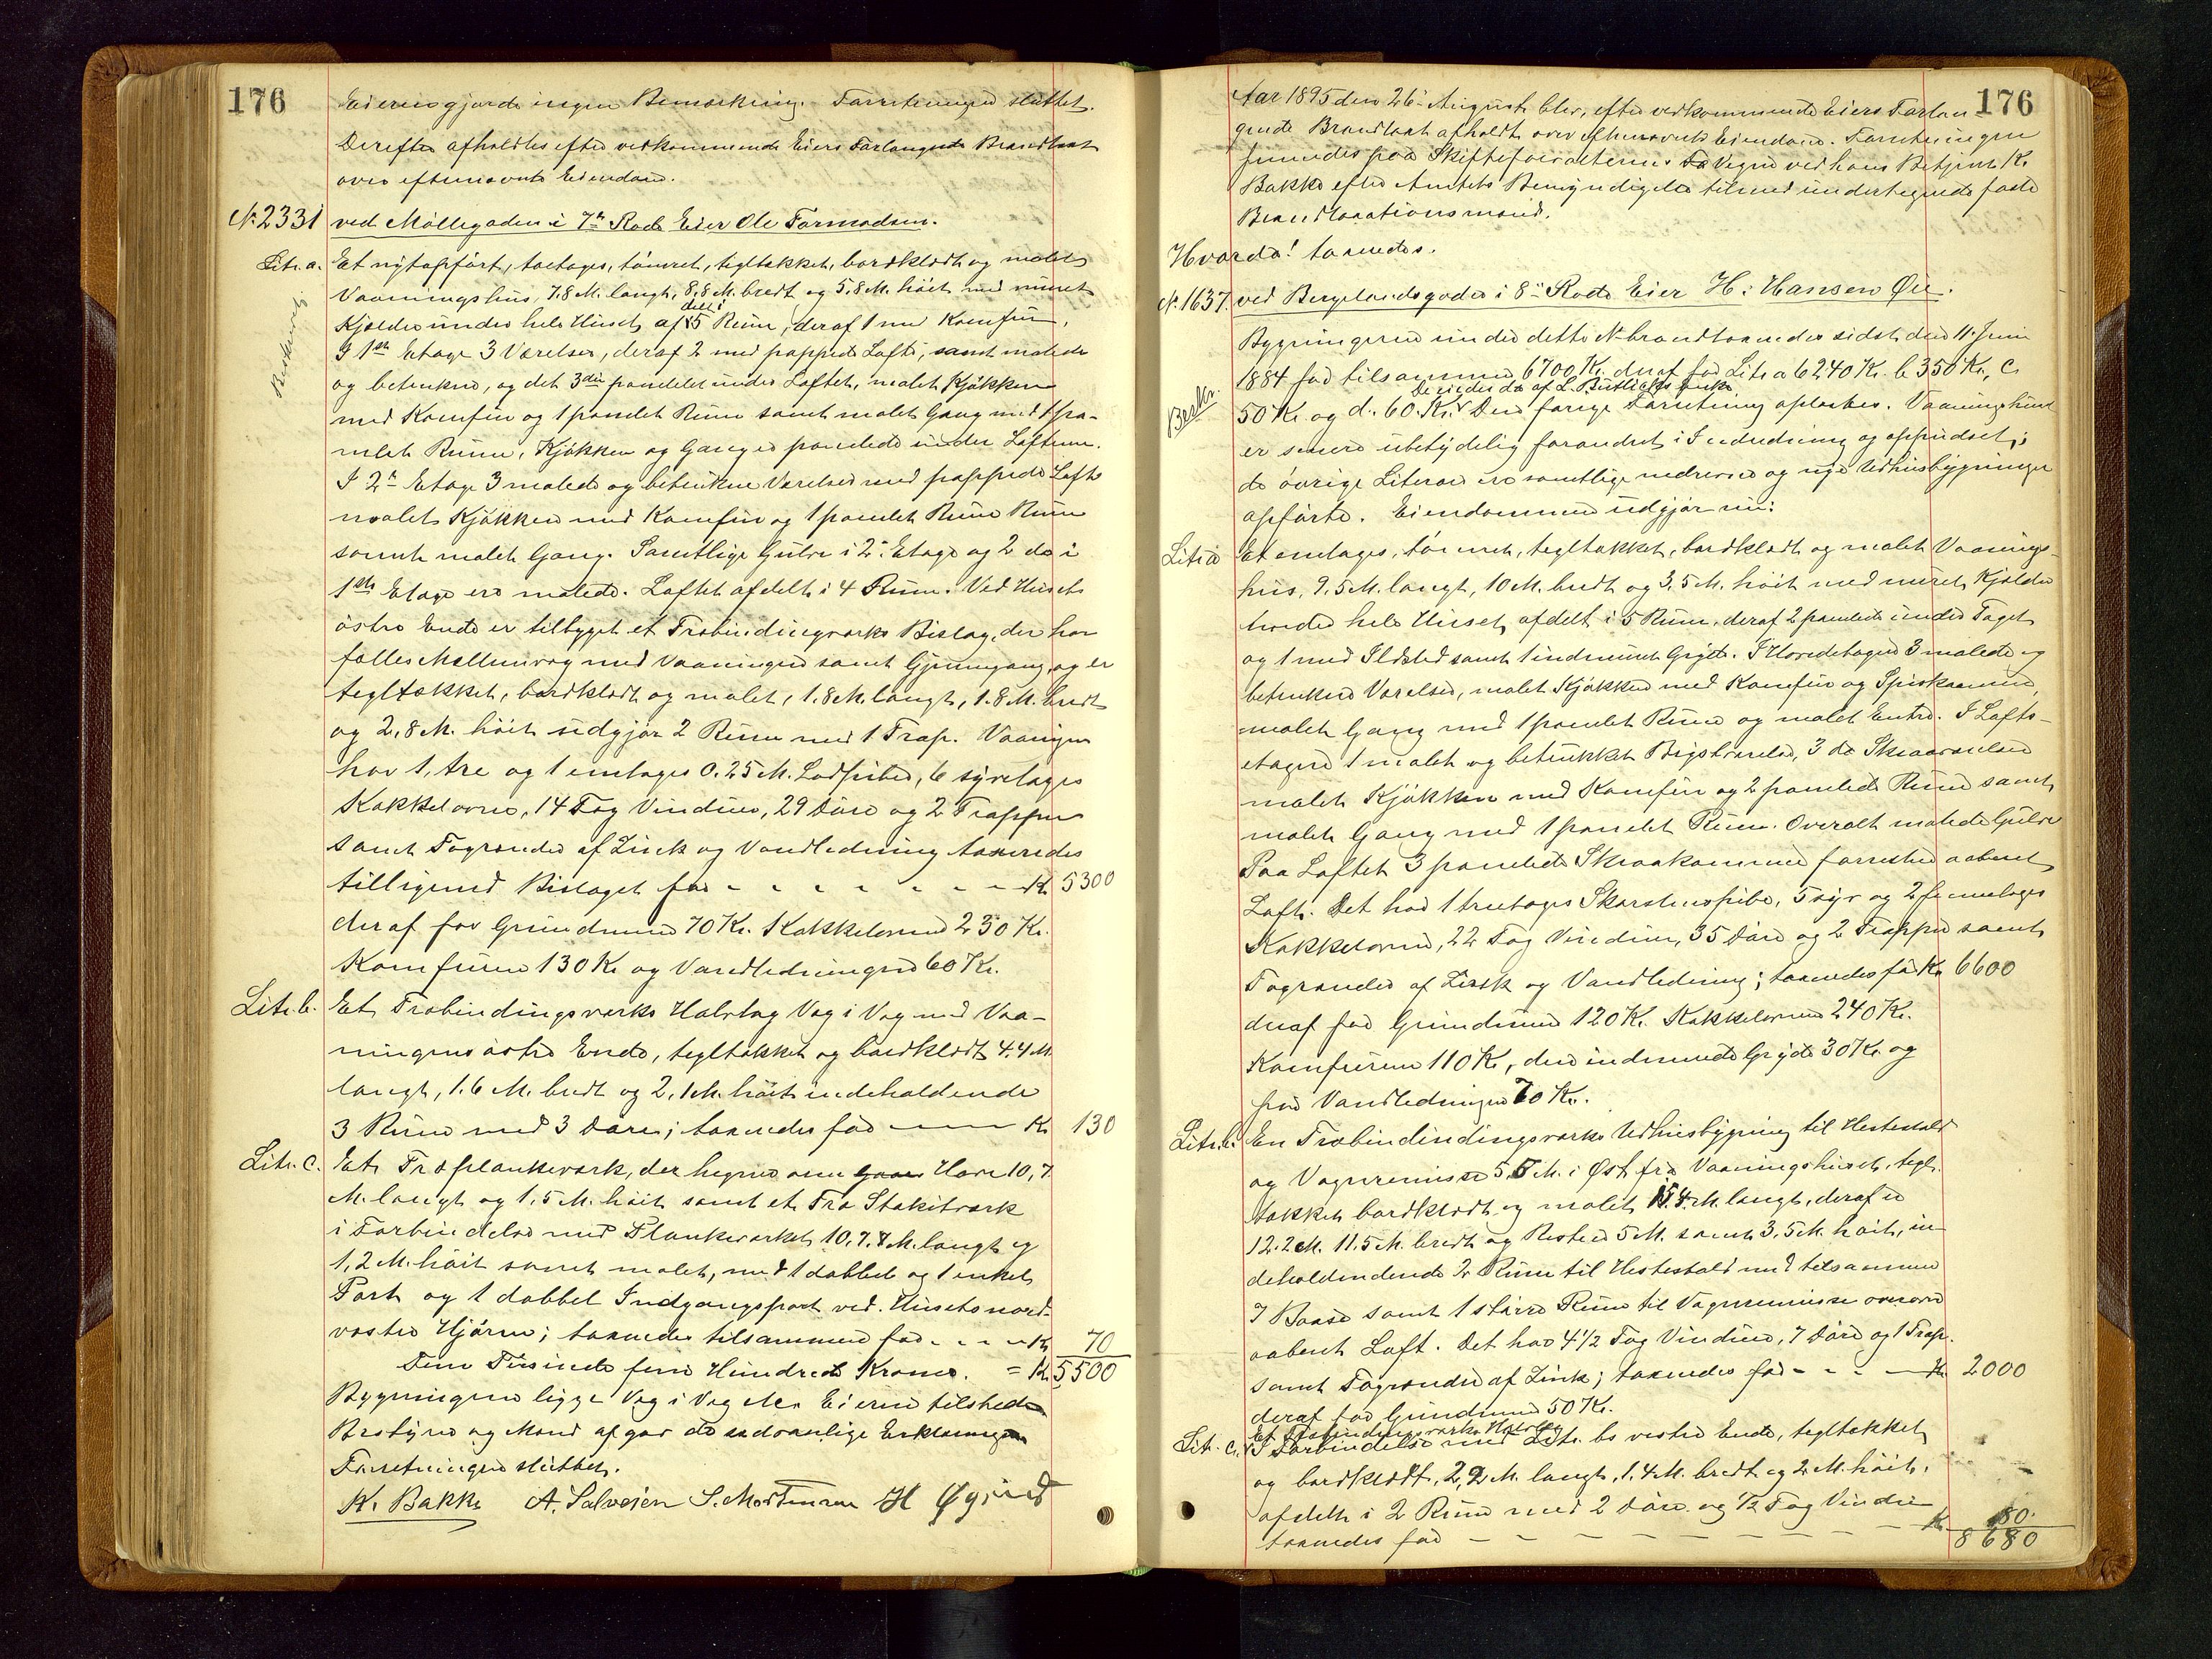 176
Eieren gjorde ingen Bemærkning. Forretningen sluttet.
Derefter afholdtes efter vedkommende Eiers Forlangende Brandtaxt
over efternævnte Eiendom.
№ 2331 ved Møllegaden i 7de Rode Eier Ole Tormodsen.
Litr. a. Et nyt opført, toetages, tømret, tegltækket, bordklædt og malet
Beskrevet.
Vaaningshus, 7,8 M. langt, 8,8 M. bredt og 5,8 M. høit med muret
Kjælder under hele Huset, afdelt i 5 Rum, deraf 1 med Komfur,
I 1ste Etage 3 Værelser, deraf 2 med pappede Loft, samt malede
og betrukne, og det 3die panelet under Loftet, malet Kjøkken
med Komfur og 1 panelet Rum samt malet Gang med 1 pa-
nelet Rum, Kjøkken og Gang er panelede under Lofterne.
I 2n Etage 3 malede og betrukne Værelser med pappede Loft
malet Kjøkken med Komfur og 1 panelet Rum Rum
samt malet Gang. Samtlige Gulve i 2. Etage og 2 do i
1ste Etage ere malede. Loftet afdelt i 4 Rum. Ved Husets
østre Ende er tilbygget et Træbindingværks Bislag, der har
fælles Mellemvæg med Vaaningen samt Gjennemgang, og er
tegltækket, bordklædt og malet, 1.8 M. langt, 1.8 M. bredt
og 2,8 M. høit udgjør 2 Rum med 1 Trap. Vaaningen
har 1, tre og 1 enetages 0.25 M. Lodpiber, 6 syvetages
Kakkelovne, 14 Fag Vinduer, 29 Døre og 2 Trapper
samt Tagrender af Zink og Vandledning taxeredes
tilligemed Bislaget for - - - - - - - Kr. 5300
deraf for Grundmuren 70 Kr. Kakkelovnene 230 Kr.
Komfurene 130 Kr. og Vandledningen 60 Kr.
Litr. b. Et Træbindingsværks Halvtag Væg i Væg med Vaa-
ningens østre Ende, tegltækket og bordklædt 4,4 M.
langt, 1,6 M. bredt og 2,1 M. høit indeholdende
3 Rum med 3 Døre; taxeredes for —— Kr. 130
Litr. c. Et Træplankeværk, der hegner om Gaar Have 10,7
M. langt og 1,5 M. høit samt et Træ Stakitværk
i Forbindelse med Plankeværket 10,7,8 M. langt og
1,2 M. høit samt malet, med 1 dobbelt og 1 enkelt
Port og 1 dobbel Indgangsport ved Husets nord-
vestre Hjørne; taxeredes tilsammen for - - - Kr. 70
Fem Tusinde fem Hundrede Kroner. = Kr. 5500
Bygningerne ligge Væg i Væg Eieren tilstede
Bestyrer og Mænd afgav de sædvanlige Erklæringer
Forretningen sluttet.
K. Bakke A. Salvesen S. Mortensen H Øglænd
176
Aar 1895 den 26. August blev, efter vedkommende Eiers Forlan-
gende Brandtaxt afholdt over eftern­ævnte Eiendom. Forretningen
fremmedes paa Skifteforvalterens Fa Vegne ved hans Betjent K.
Bakke efter Amtets Bemyndigelse tilmed undertegnede faste
Brandtaxationsmænd.
Hvorda! taxeredes.
№ 1637. ved Bergelandsgaden i 8de Rode Eier H: Hansen Øie.
Beskr.
Bygningerne under dette № brandtaxeredes sidst den 11. Juni
1884 for tilsammen 6700 Kr. deraf for Litr. a 6240 Kr. b 350 Kr., c.
50 Kr. og d. 60 Kr. Den forrige Forretning oplæstes. Vaaningshuset
er senere ubetydelig forandret i Indredning og oppudset;
de øvrige Litraer ere samtlige nedrevne og nye Udhusbygninger
opførte. Eiendommen udgjør nu:
Litr. a Et enetages, tømret, tegltækket, bordklædt og malet Vaanings-
hus, 9.5 M. langt, 10 M. bredt og 3,5 M. høit med muret Kjælder
under hele Huset, afdelt i 5 Rum, deraf 2 panelede under Taget
og 1 med Ildsted samt 1 indmuret Gryde. I Hovedetagen 3 malede og
betrukne Værelser, malet Kjøkken med Komfur og Spiskammer,
malet Gang med 1 panelet Rum og malet Entré. I Lofts-
etagen 1 malet og betrukket Kvistværelse, 3 do Skraaværelser
malet Kjøkken med Komfur og 2 panelede Rum samt
malet Gang med 1 panelet Rum. Overalt malede Gulve
Paa Loftet 3 panelede Skraakammer forresten aabent
Loft. Det har 1 treetages Skorstenspibe, 5 syv og 2 femetages
Kakkelovne, 22 Fag Vinduer, 35 Døre og 2 Trapper samt
Tagrender af Zink og Vandledning; taxeredes for Kr. 6600
deraf for Grundmuren 120 Kr. Kakkelovnene 240 Kr.
Komfurene 110 Kr., den indmurede Gryde 30 Kr. og
for Vandledningen 70 Kr.
Litr. b. En Træbindindingsværks Udhusbygning til Hestestald
og Vognremisse 5,5 M. i Øst fra Vaaningshuset, tegl-
tækket bordklædt og malet 15.4 M. langt, deraf er
12.2 M. 11.5 M. bredt og Resten 5 M. samt 3,5 M. høit, in-
deholdendende 2 Rum til Hestestald med tilsammen
7 Baase samt 1 større Rum til Vognremisse ovenover
aabent Loft. Det har 4 1/2 Fag Vinduer, 7 Døre og 1 Trap.
samt Tagrender af Zink; taxeredes for - - - Kr. 2000
deraf for Grundmuren 50 Kr.
Et Træbindingsværks Halvtag
Litr. c. I Forbindelse med Litr. bs vestre Ende, tegltækket
og bordklædt, 2,2 M. langt, 1.4 M. bredt og 2 M. høit,
afdelt i 2 Rum med 2 Døre og 1/2 Fag Vindue
taxeredes for - - - - - - - Kr. 80.
8680